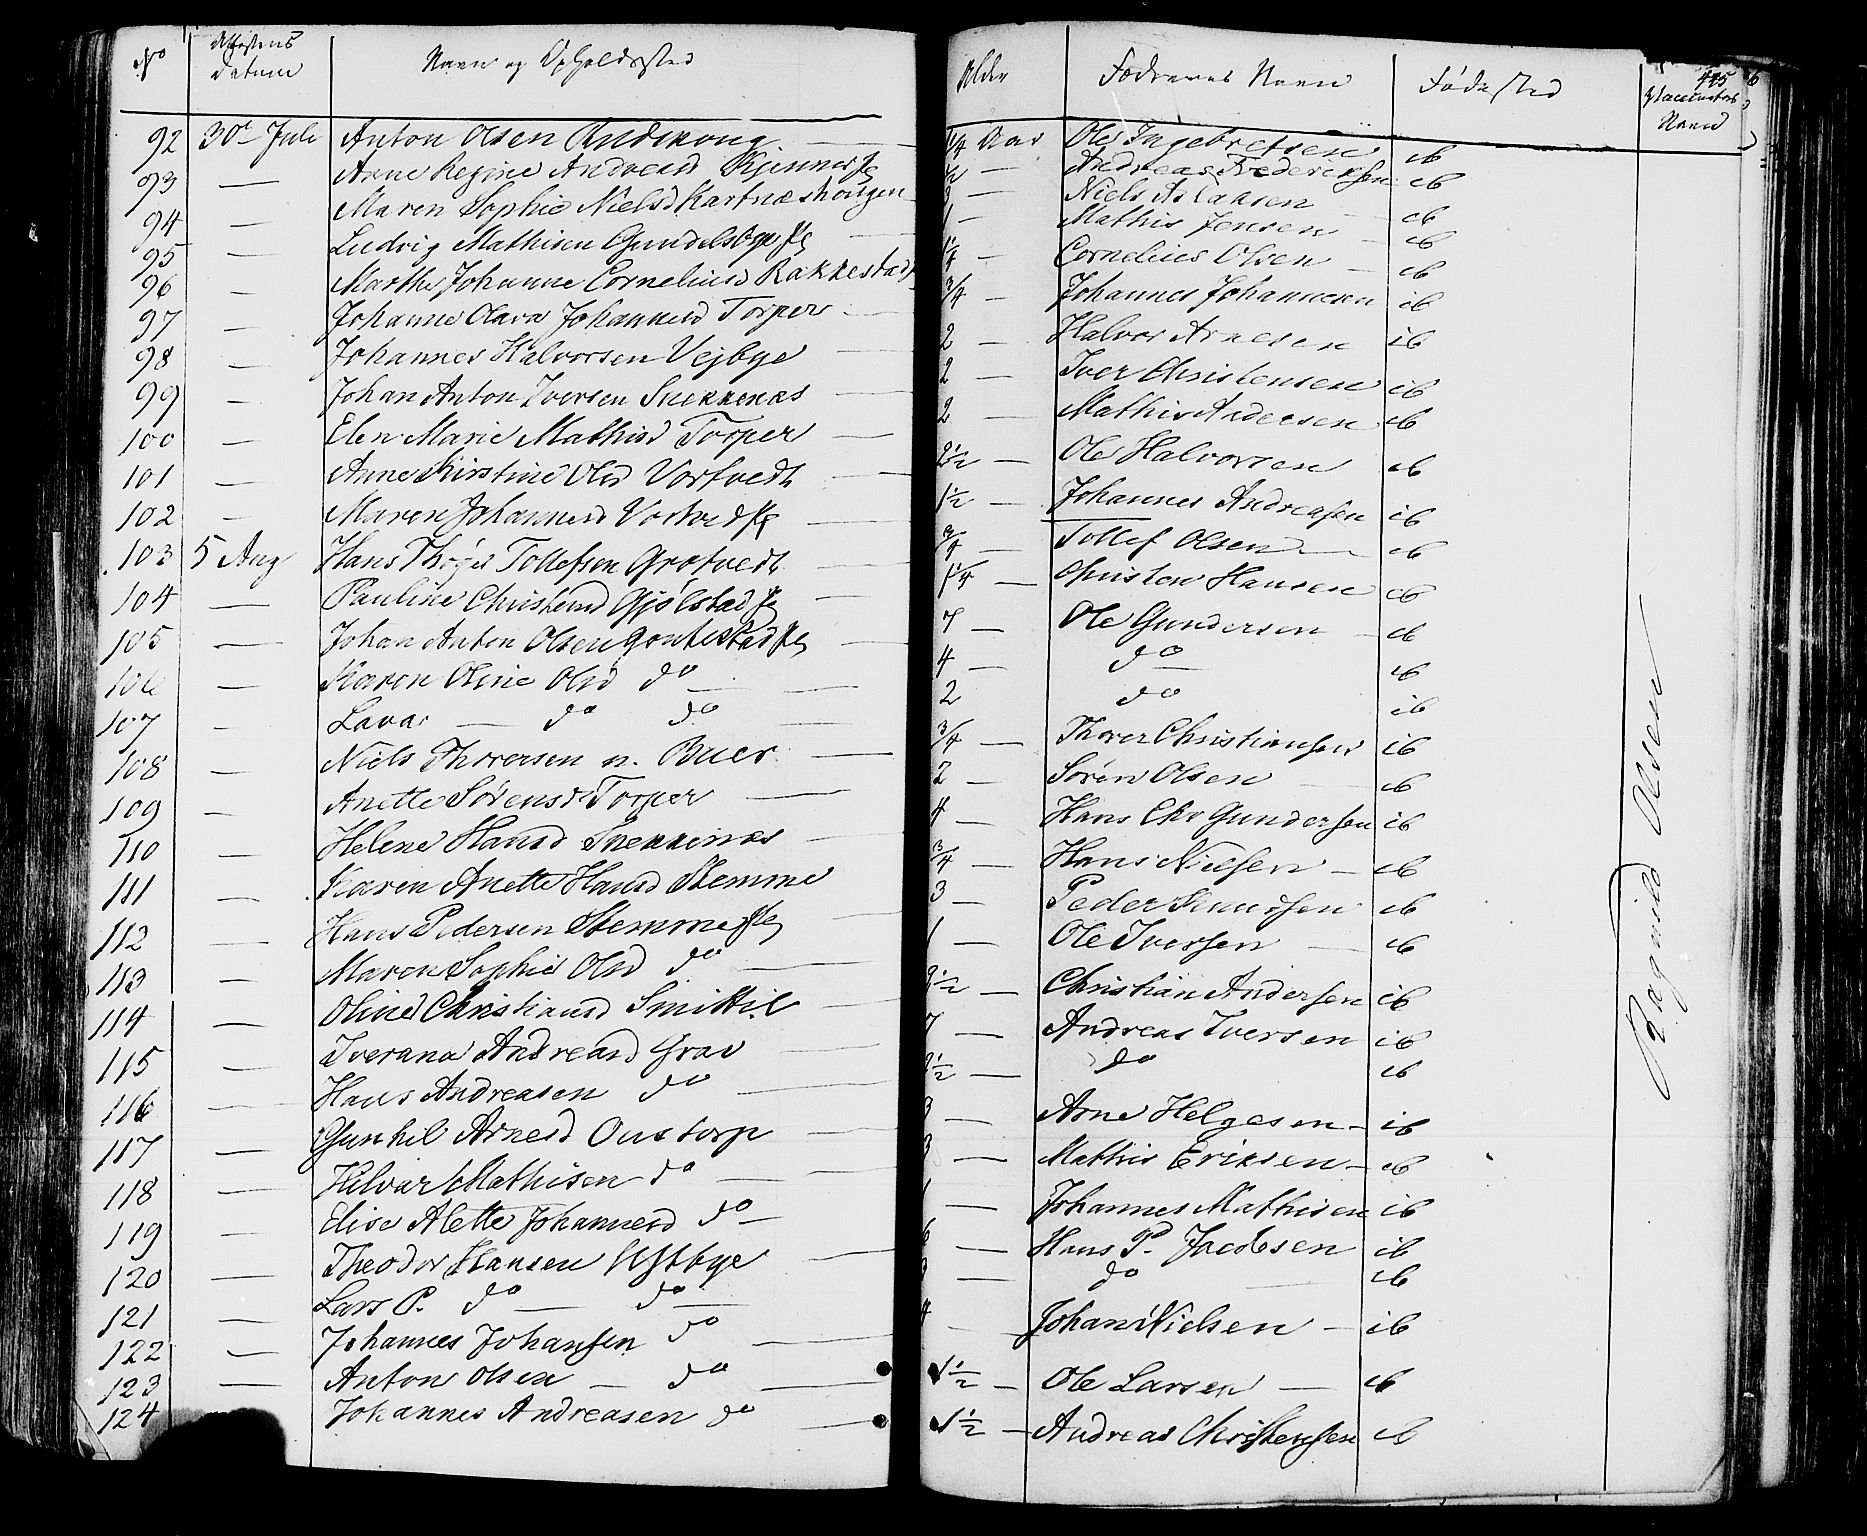 No Attestens Datum Navn og Opholdssted Alder Fædrenes Navn Fødested Vaccinators Navn
445
92 30te Juli Anton Olsen 1/4 Aar Ole Ingebretsen ib
93 — Anne Regine Andreasd 1/2 — Andreas Fredericksen ib
94 — Maren Sophie Nielsd Kartnæshougen 3 — Niels Aslaksen ib
95 — Ludvig Mathisen Gundelsbye 1 — Mathis Jensen ib
96 — Marthe Johanne Corneliusd Rakkestad 1/4 — Cornelius Olsen ib
97 — Johanne Olava Johannesd Torper 3/4 — Johannes Johannesen ib
98 — Johannes Halvorsen Vejbye 2 — Halvor Arnesen ib
99 — Johan Anton Iversen Snekkenæs 2 — Iver Christensen ib
100 — Elen Marie Mathisd Torper 2 — Mathis Andersen ib
101 — Anne Kirstine Olsd Vortvedt 2 1/2 — Ole Halvorsen ib
102 — Maren Johannesd Vortvedt 1 1/2 — Johannes Andreasen ib
103 5 Aug Hans Thoger Tollefsen Grotvedt 3/4 — Tollef Olsen ib
104 — Pauline Christensd Gjølstad 1 1/4 — Christen Hansen ib
105 — Johan Anton Olsen 7 — Ole Gundersen ib
106 — Karen Oline Olsd do 4 — do ib
107 — Lava — do do 2 do ib
108 — Niels Thorersen n. Buer 3/4 — Thorer Christiansen ib
109 — Anette Sørensd Torper 2 — Søren Olsen ib
110 — Helene Hansd Snekkenæs 4 — Hans Chr Gundersen ib
111 — Karen Anette Hansd Stemme 3/4 — Hans Nielsen ib
112 — Hans Pedersen Stemme 3 — Peder Knudsen ib
113 — Maren Sophie Olsd do 1 — Ole Iversen ib
114 — Oline Christiansd Smittil 2 1/2 — Christian Andersen ib
115 — Iverana Andreasd Grav 7 — Andreas Iversen ib
116 — Hans Andreasen do 2 1/2 — do ib
117 — Gunhil Arnesd Oustorp 3 — Arne Helgesen ib
118 — Hilvar Mathisen do 3 — Mathis Eriksen ib
119 — Elise Alette Johannesd do 1 — Johannes Mathisen ib
120 — Theodor Hansen Ustbye 6 — Hans P. Jacobsen ib
121 — Lars P. do do — do ib
122 — Johannes Johansen do 4 — Johan Nielsen ib
123 — Anton Olsen — do 1 1/2 — Ole Larsen ib
124 Johannes Andreasen do 1 1/2 — Andreas Christensen ib
Ragnild Olsen